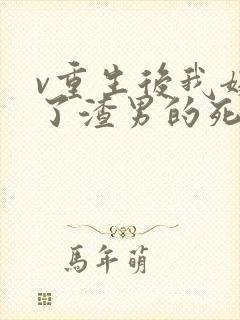 v重生後我
了渣男的死
馬年萌